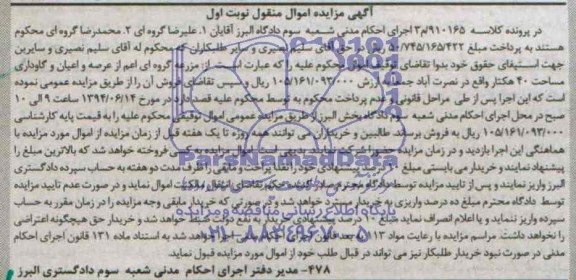 آگهی مزایده اموال منقول نوبت اول
در پرونده کلاسه ۹۱۰۱۶۵/م۳ اجرای احکام مدنی شعبه سوم دادگاه البرز آقایان ۱. علیرضا گروه ای ۲. محمدرضا گروه ای محکوم
هستند به پرداخت مبلغ ۱۰/۷۴۵/۱۶۵/۴۲۲ ریال در حق آقای سلیم نصیری و سایر طلبکاران که محکوم له آقای سلیم نصیری و سایرین
جهت استیفای حقوق خود بدوا تقاضای توقیف اموال محکوم علیه را که عبارت است از مزرعه گروه ای اعم از عرصه و اعیان و گاوداری
مساحت ۴۰ هکتار واقع در نصرت آباد جمعا به ارزش ۱۰۵/۱۶۱/۰۹۳/۰۰۰ ریال و سپس تقاضای فروش آن را از طریق مزایده عمومی نموده
است که این اجرا پس از طی مراحل قانونی و عدم پرداخت محکوم به توسط محکوم علیه قصد دارد در مورخ ۱۳۹۴/۰۶/۱۴ ساعت ۹ الی ۱۰
صبح در محل اجرای احکام مدنی شعبه سوم دادگاه بخش البرز از طریق مزایده عمومی اموال توقیفی محکوم علیه را به قیمت پایه کارشناسی
۱۰۵/۱۶۱/۰۹۳/۰۰۰ ریال به فروش برساند. طالبین و خریداران می توانند همه روزه تا یک هفته قبل از زمان مزایده از اموال مورد مزایده با
هماهنگی این اجرا بازدید و در زمان مزایده حضور شرکت نمایند. بدیهی است اموال مزایده به کسی فروخته خواهد شد که بالاترین مبلغ را
پیشنهاد نمایند و خریدار می بایستی مبلغ پیشنهادی خود را نقدا پرداخت و مابقی را ظرف مدت دو هفته به حساب سپرده دادگستری
البرز واریز نمایند و پس از تایید مزایده توسط دادگاه محترم تقاضای انتقال مالکیت اموال نماید و در صورت عدم تایید مزایده
توسط دادگاه محترم مبلغ ده درصد واریزی به خریدار مسترد خواهد شد و در صورتی که خریدار مابقی وجه مزایده را در زمان مقرر به حساب
سپرده واریز ننماید و یا اعلام انصراف نماید مبلغ ۱۰ درصد پیشنهادی خریدار به نفع دولت ضبط خواهد شد و خریدار حق هیچگونه اعتراضی
را نخواهد داشت. مراسم مزایده با رعایت مواد ۱۱۳ بعد قانون اجرای احکام مدنی خواهد شد به استناد ماده ۱۳۱ قانون اجرای احکام
مدنی در صورت نبود خریدار طلبکار نیز می تواند در قبال طلب خود از اموال مورد مزایده قبول نماید.
۴۷۸- مدیر دفتر اجرای احکام مدنی شعبه سوم دادگستری البرز
ParsNamadData
پایگاه اطلاع رسانی مناقصه و مزایده
۰۲۱-۸۸۳۴۹۶۷۰-۵